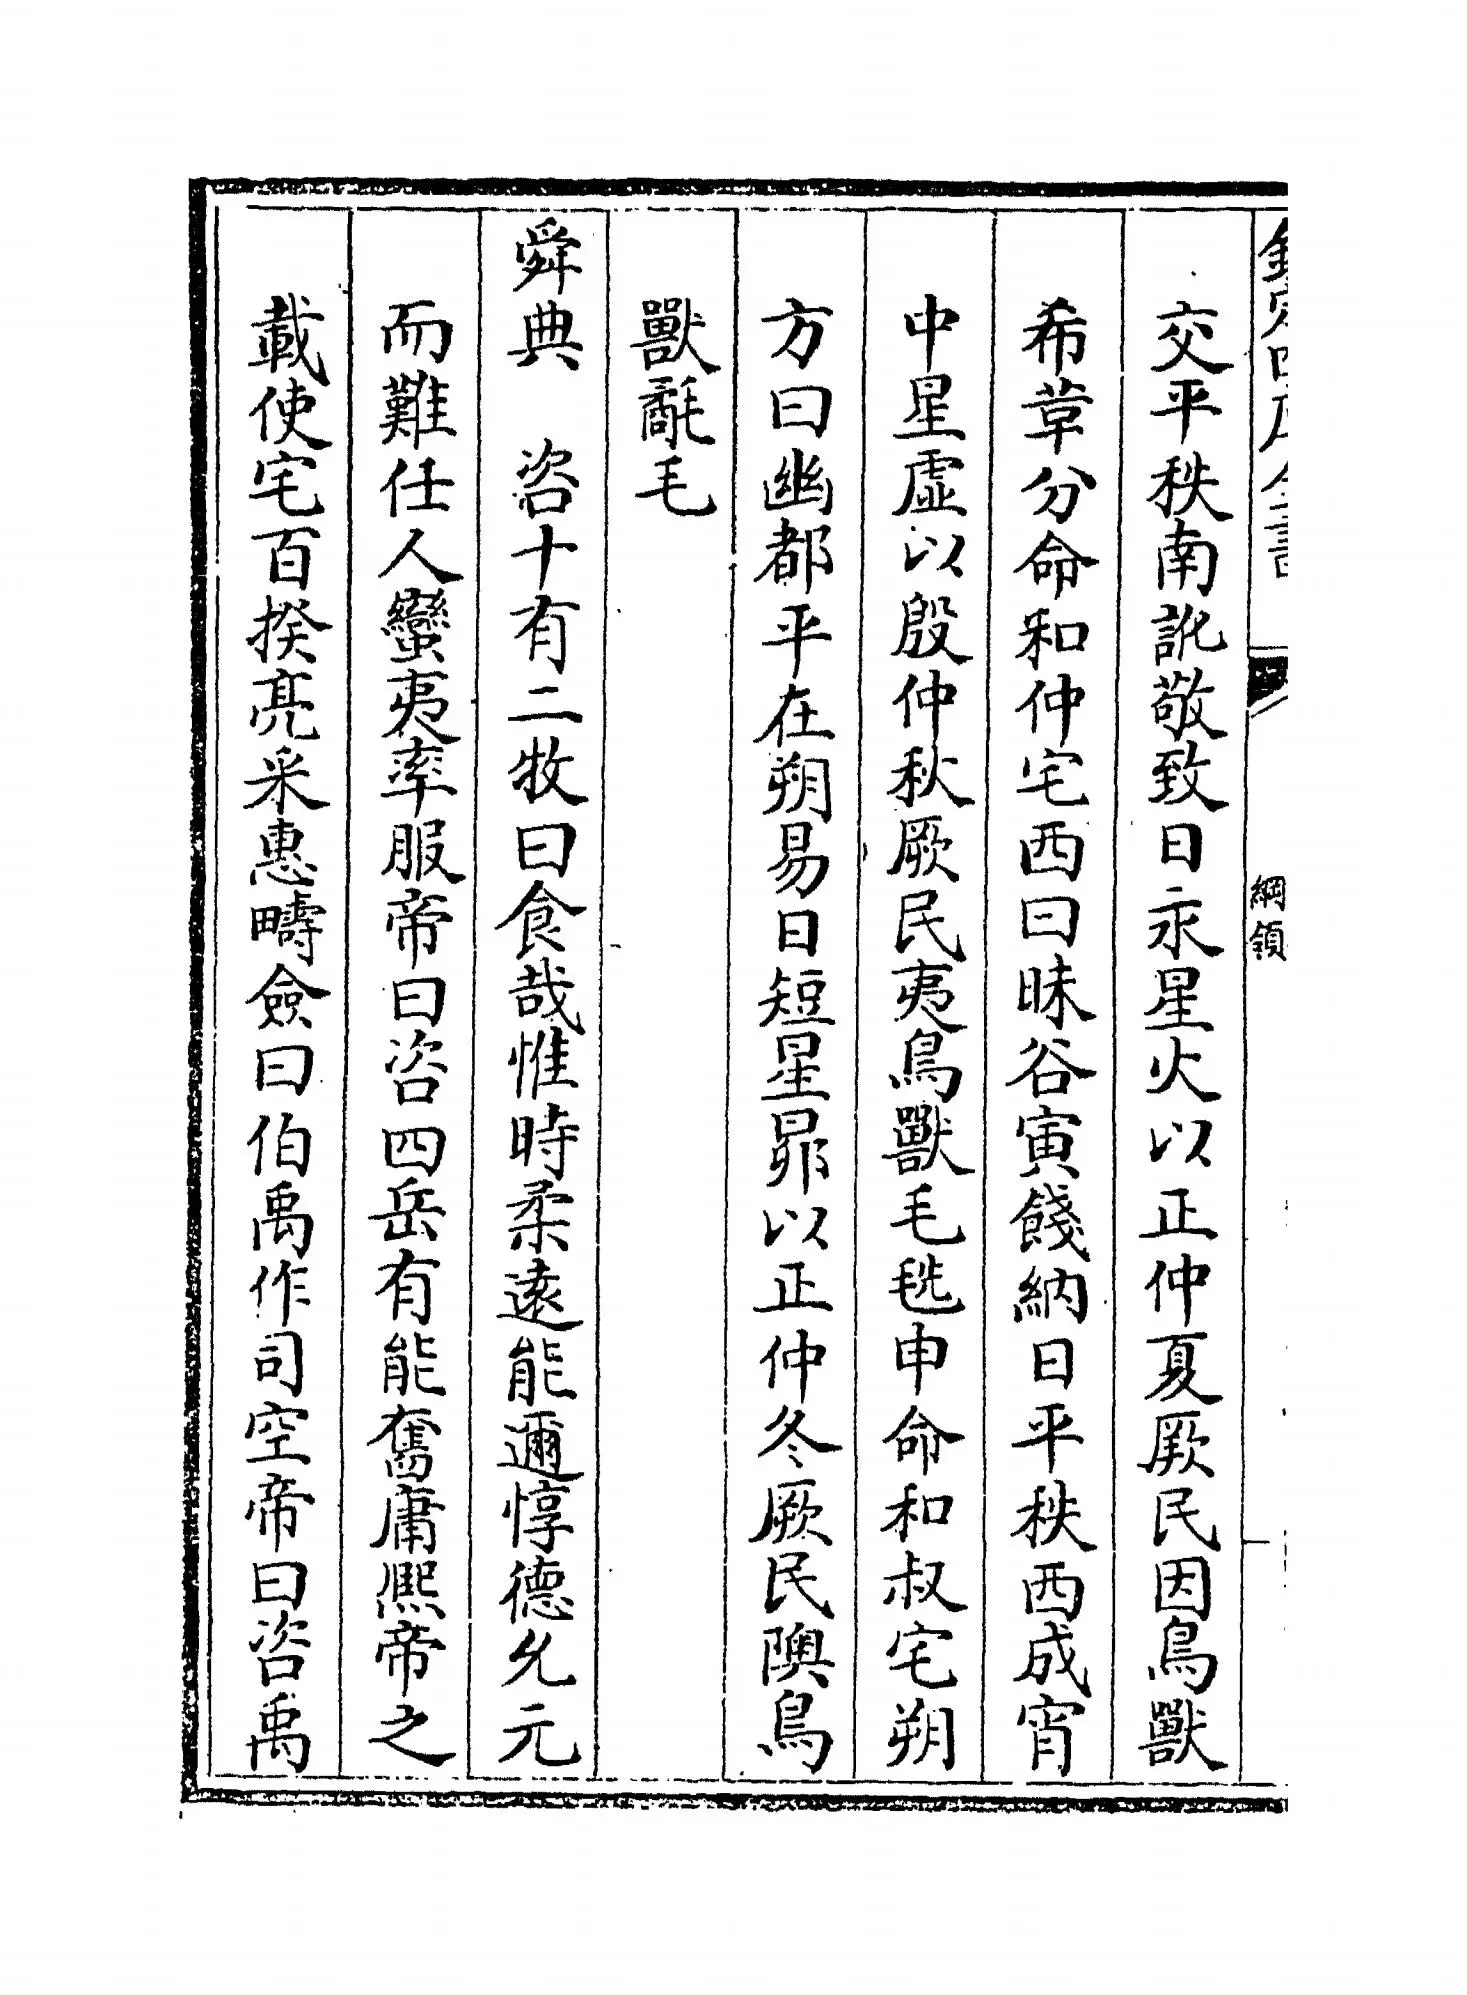 欽定四庫全書
綱領
交平秩南訛敬致日永星火以正仲夏厥民因鳥獸
希革分命和仲宅西曰昧谷寅餞納日平秩西成宵
中星虛以殷仲秋厥民夷鳥獸毛毨申命和叔宅朔
方曰幽都平在朔易日短星昴以正仲冬厥民隩鳥
獸氄毛
舜典　咨十有二牧曰食哉惟時柔遠能邇惇德允元
而難任人蠻夷率服帝曰咨四岳有能奮庸熙帝之
載使宅百揆亮采惠疇僉曰伯禹作司空帝曰咨禹